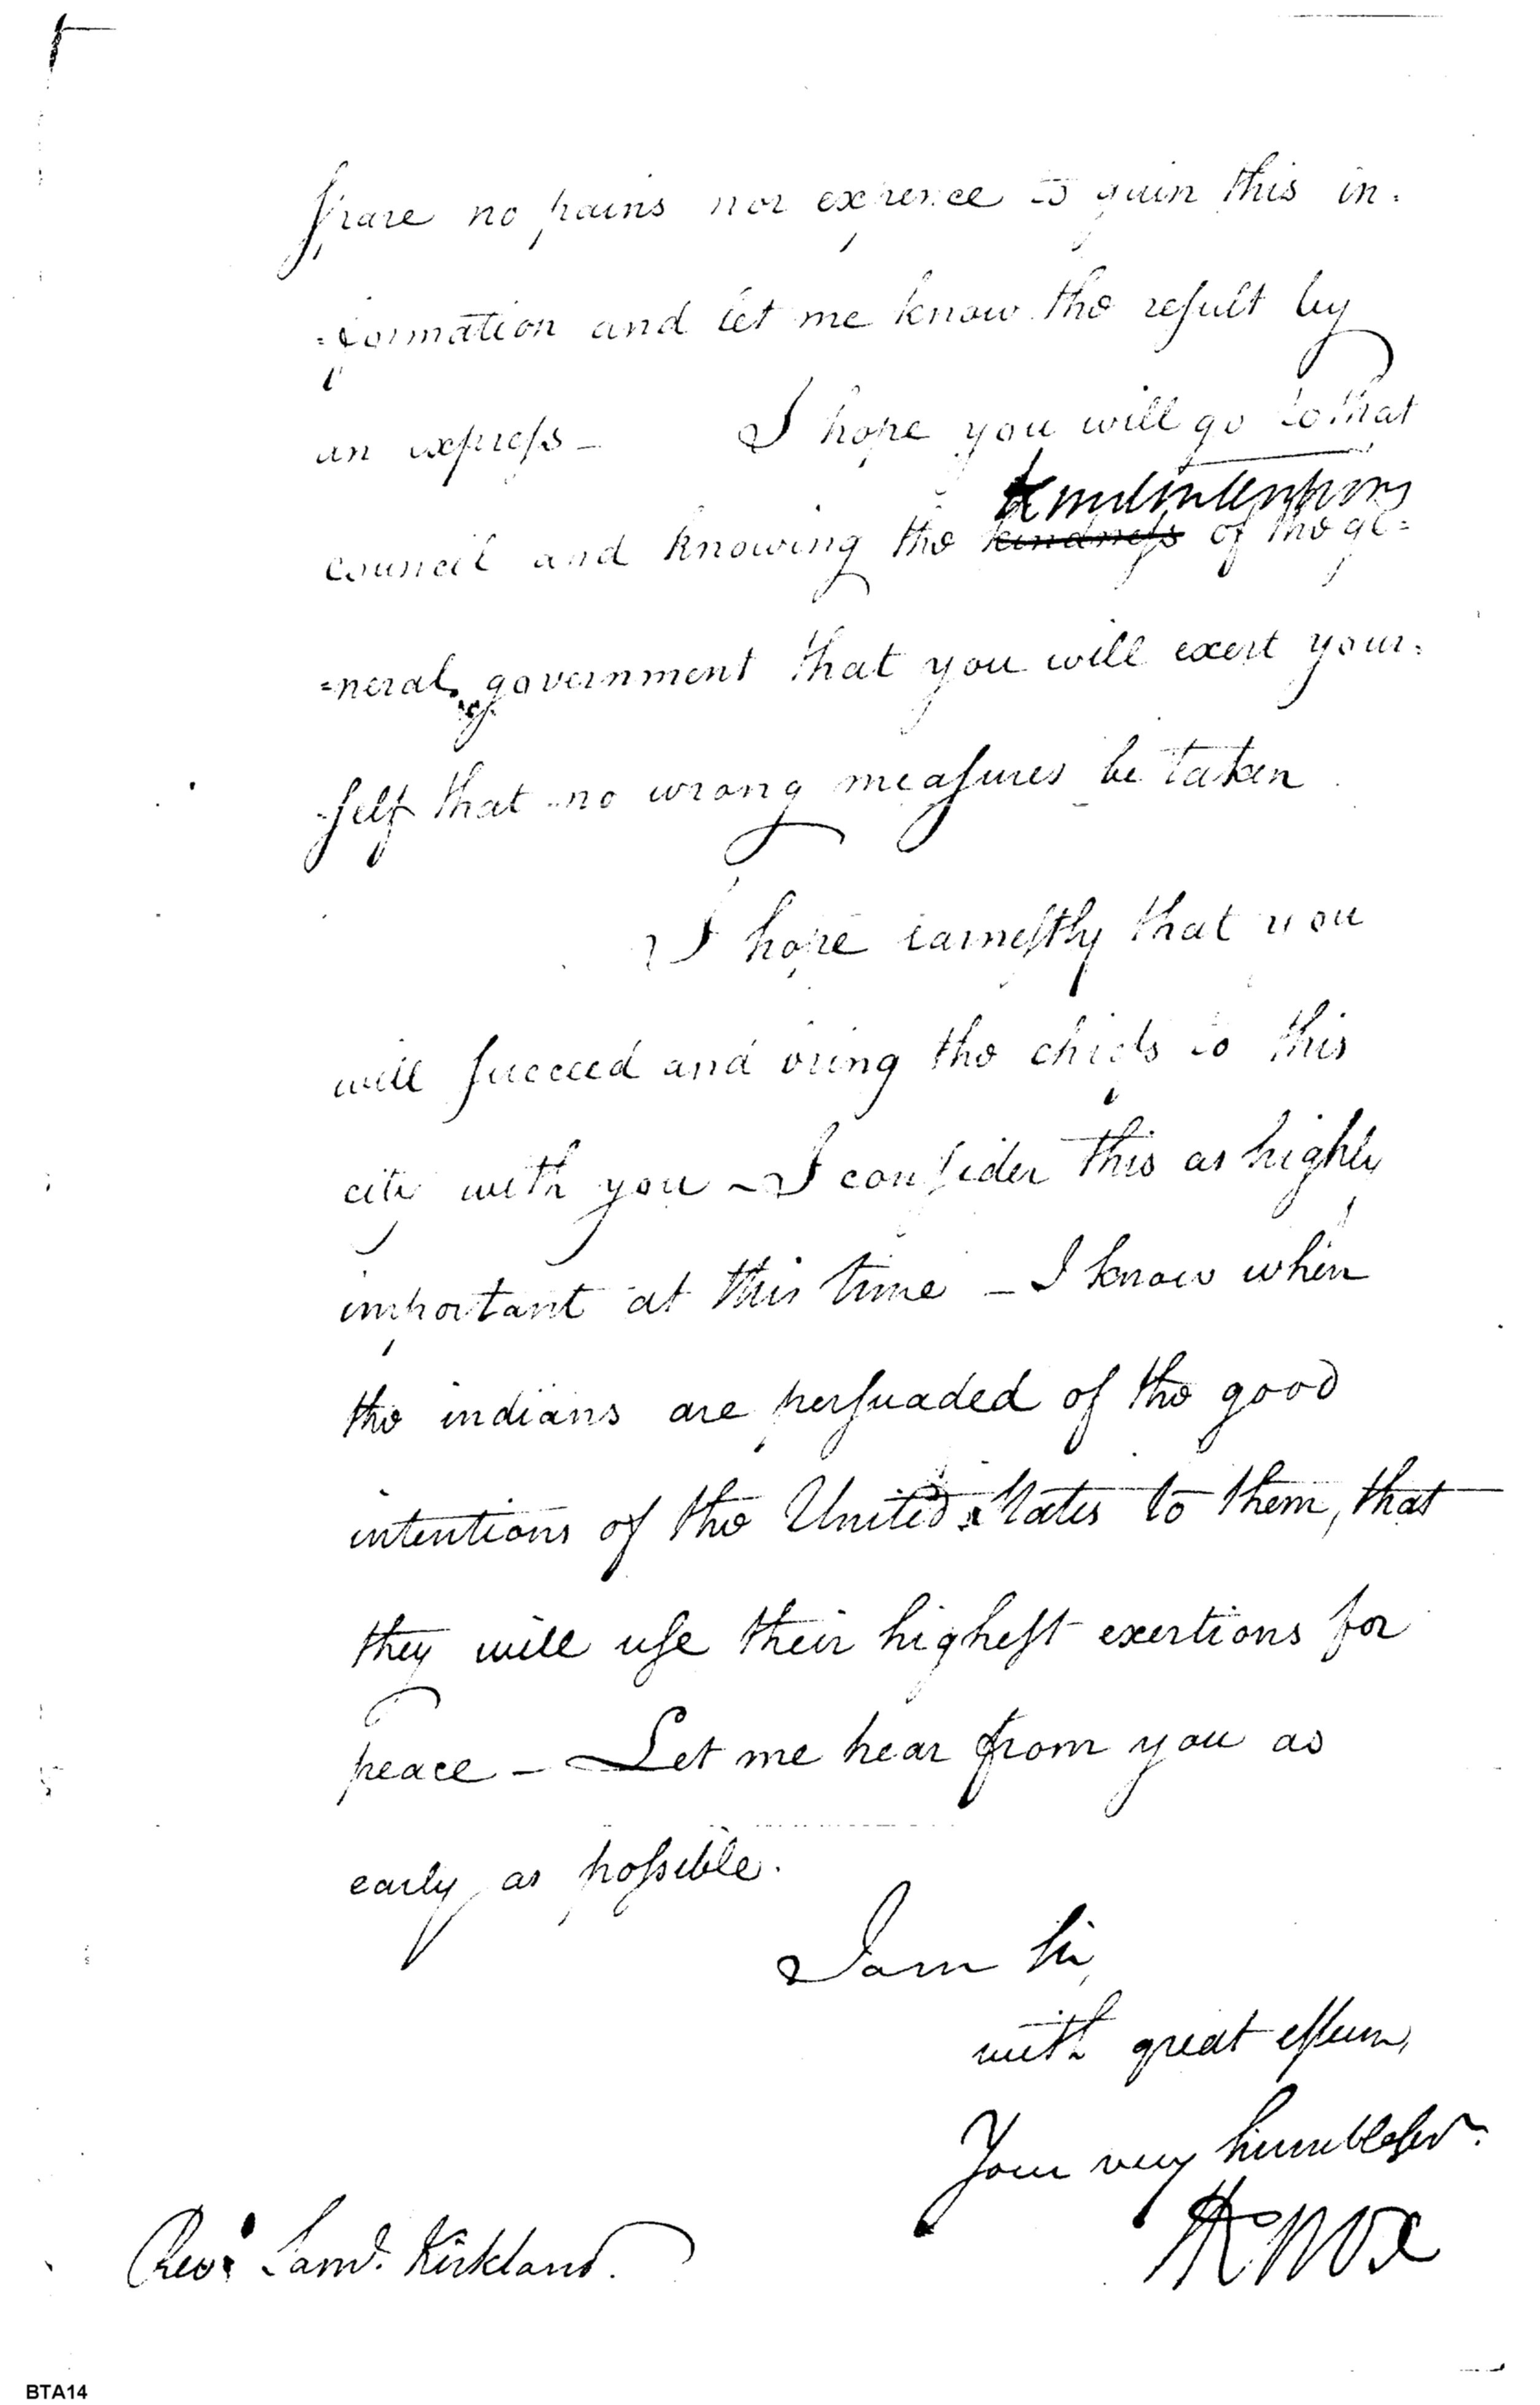 spare no pains nor expence to gain this in=
=formation and let me know the result by
an express — I hope you will go to that
kind intentions
council and knowing the kindness of the ge=
=neral government that you will exert your=
=self that no wrong measures be taken
I hope earnestly that you
will succeed and bring the chiefs to this
city with you — I consider this as highly
important at this time — I know when
the indians are persuaded of the good
intentions of the United States to them, that
they will use their highest exertions for
peace — Let me hear from you as
early as possible.
I am Sir
with great esteem,
Your very humble servt.
HKnox
Revd. Saml. Kirkland.
BTA14